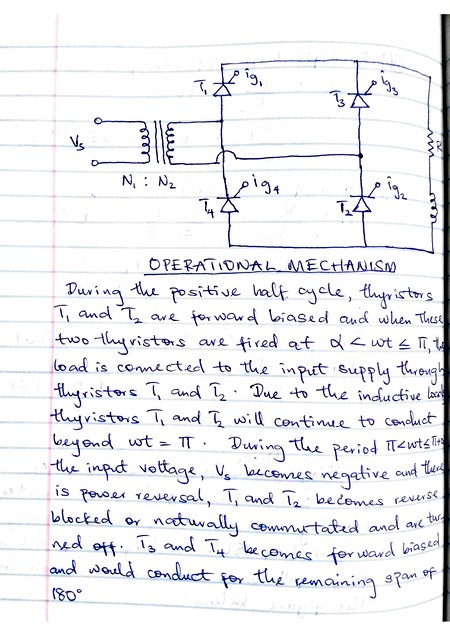 T1 ig1
T3 ig3
Vs
R
N1 : N2
T4 ig4
T2 ig2
OPERATIONAL MECHANISM
During the positive half cycle, thyristors
T1 and T2 are forward biased and when these
two thyristors are fired at α < wt ≤ π, the
load is connected to the input supply through
thyristors T1 and T2. Due to the inductive load
thyristors T1 and T2 will continue to conduct
beyond wt = π. During the period π<wt≤π+
the input voltage, Vs becomes negative and there
is power reversal, T1 and T2 becomes reverse
blocked or naturally commutated and are tur
ned off. T3 and T4 becomes forward biased
and would conduct for the remaining span of
180°